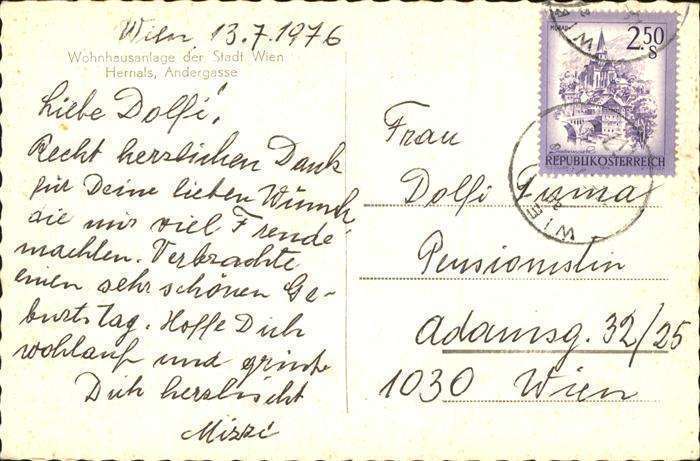 Wien, 13.7.1976
Wohnhausanlage der Stadt Wien
Hernals, Andergasse
Liebe Dolfi!
Recht herzlichen Dank
für Deine lieben Wünsche
die mir viel Freude
machten. Verbrachte
einen sehr schönen Ge-
burtstag. Hoffe Dich
wohlauf und grüße
Dich herzlichst
Mizzi
2.50
S
REPUBLIK ÖSTERREICH
WIEN
Frau
Dolfi
Pensionistin
Adamsg. 32/25
1030 Wien